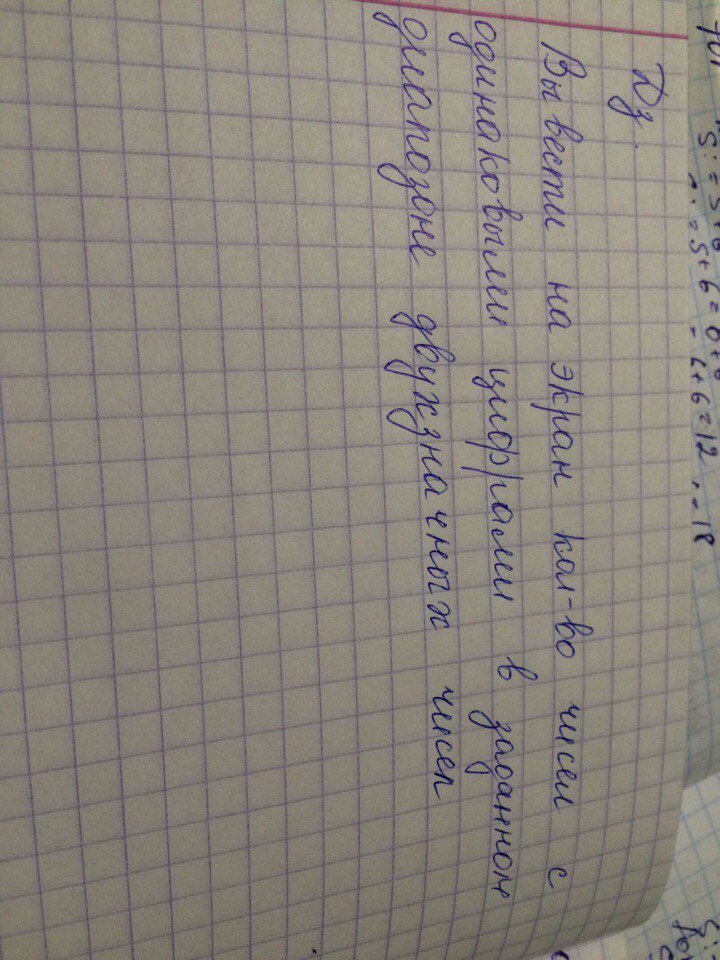 Дз.
Вывести на экран кол-во чисел с
одинаковыми цифрами в заданном
диапозоне двухзначных чисел
for
S:=S+6
=5+6=0+6
=6+6=12
=18